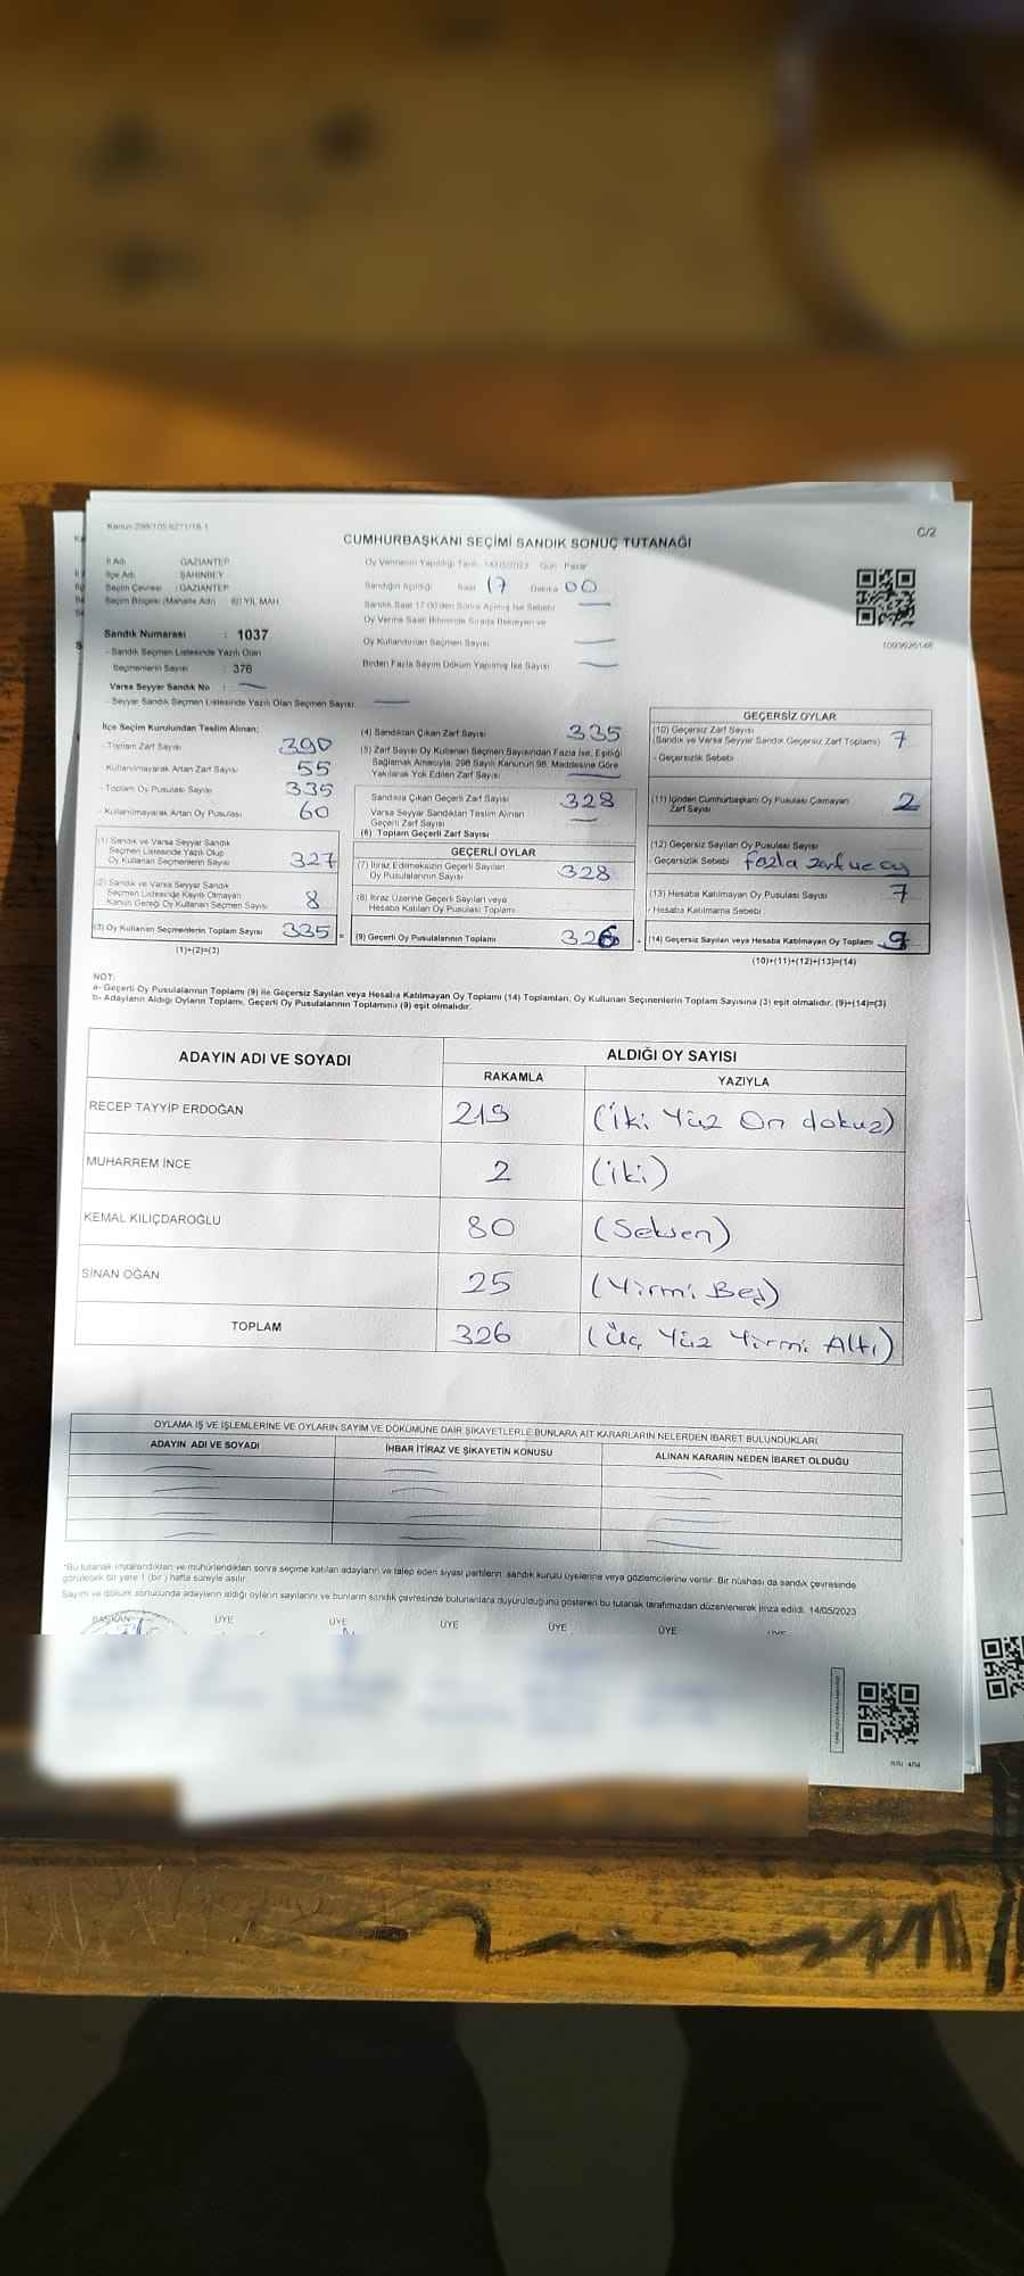 Kanun 298/105 6271/18-1
C/2
CUMHURBAŞKANI SEÇİMİ SANDIK SONUÇ TUTANAĞI
İl Adı : GAZİANTEP
İlçe Adı : ŞAHİNBEY
Seçim Çevresi : GAZİANTEP
Seçim Bölgesi (Mahalle Adı) : 60 YIL MAH.
Sandık Numarası : 1037
- Sandık Seçmen Listesinde Yazılı Olan
Seçmenlerin Sayısı : 376
Varsa Seyyar Sandık No :
- Seyyar Sandık Seçmen Listesinde Yazılı Olan Seçmen Sayısı:
Oy Vermenin Yapıldığı Tarih 14/05/2023 Gün Pazar
Sandığın Açıldığı Saat 17 Dakika 00
Sandık Saat 17.00'den Sonra Açılmış İse Sebebi
Oy Verme Saati Bitiminde Sırada Bekleyen ve
Oy Kullandırılan Seçmen Sayısı
Birden Fazla Sayım Döküm Yapılmış İse Sayısı
İlçe Seçim Kurulundan Teslim Alınan:
- Toplam Zarf Sayısı 390
- Kullanılmayarak Artan Zarf Sayısı 55
- Toplam Oy Pusulası Sayısı 335
- Kullanılmayarak Artan Oy Pusulası 60
(1) Sandık ve Varsa Seyyar Sandık
Seçmen Listesinde Yazılı Olup
Oy Kullanan Seçmenlerin Sayısı 327
(2) Sandık ve Varsa Seyyar Sandık
Seçmen Listesinde Kayıtlı Olmayan
Kanun Gereği Oy Kullanan Seçmen Sayısı 8
(3) Oy Kullanan Seçmenlerin Toplam Sayısı 335
(1)+(2)=(3)
(4) Sandıktan Çıkan Zarf Sayısı 335
(5) Zarf Sayısı Oy Kullanan Seçmen Sayısından Fazla İse, Eşitliği
Sağlamak Amacıyla, 298 Sayılı Kanunun 98. Maddesine Göre
Yakılarak Yok Edilen Zarf Sayısı
Sandıkta Çıkan Geçerli Zarf Sayısı 328
Varsa Seyyar Sandıktan Teslim Alınan
Geçerli Zarf Sayısı
(6) Toplam Geçerli Zarf Sayısı
GEÇERLİ OYLAR
(7) İtiraz Edilmeksizin Geçerli Sayılan
Oy Pusulalarının Sayısı 328
(8) İtiraz Üzerine Geçerli Sayılan veya
Hesaba Katılan Oy Pusulası Toplamı
(9) Geçerli Oy Pusulalarının Toplamı 326
GEÇERSİZ OYLAR
(10) Geçersiz Zarf Sayısı
(Sandık ve Varsa Seyyar Sandık Geçersiz Zarf Toplamı) 7
- Geçersizlik Sebebi
(11) İçinden Cumhurbaşkanı Oy Pusulası Çıkmayan
Zarf Sayısı 2
(12) Geçersiz Sayılan Oy Pusulası Sayısı
- Geçersizlik Sebebi fazla zarf ve oy
(13) Hesaba Katılmayan Oy Pusulası Sayısı 7
- Hesaba Katılmama Sebebi
(14) Geçersiz Sayılan veya Hesaba Katılmayan Oy Toplamı 9
(10)+(11)+(12)+(13)=(14)
NOT:
a- Geçerli Oy Pusulalarının Toplamı (9) ile Geçersiz Sayılan veya Hesaba Katılmayan Oy Toplamı (14) Toplamları, Oy Kullanan Seçmenlerin Toplam Sayısına (3) eşit olmalıdır. (9)+(14)=(3)
b- Adayların Aldığı Oyların Toplamı, Geçerli Oy Pusulalarının Toplamına (9) eşit olmalıdır.
ADAYIN ADI VE SOYADI
ALDIĞI OY SAYISI
RAKAMLA YAZIYLA
RECEP TAYYİP ERDOĞAN 219 (İki Yüz On dokuz)
MUHARREM İNCE 2 (iki)
KEMAL KILIÇDAROĞLU 80 (Seksen)
SİNAN OĞAN 25 (Yirmi Beş)
TOPLAM 326 (Üç Yüz Yirmi Altı)
OYLAMA İŞ VE İŞLEMLERİNE VE OYLARIN SAYIM VE DÖKÜMÜNE DAİR ŞİKAYETLERLE BUNLARA AİT KARARLARIN NELERDEN İBARET BULUNDUKLARI
ADAYIN ADI VE SOYADI İHBAR İTİRAZ VE ŞİKAYETİN KONUSU ALINAN KARARIN NEDEN İBARET OLDUĞU
*Bu tutanak imzalandıktan ve mühürlendikten sonra seçime katılan adayların ve talep eden siyasi partilerin sandık kurulu üyelerine veya gözlemcilerine verilir. Bir nüshası da sandık çevresinde
görülecek bir yere 1 (bir) hafta süreyle asılır.
Sayım ve döküm sonucunda adayların aldığı oyların sayılarını ve bunların sandık çevresinde bulunanlara duyurulduğunu gösteren bu tutanak tarafımızdan düzenlenerek imza edildi. 14/05/2023
BAŞKAN ÜYE ÜYE ÜYE ÜYE ÜYE